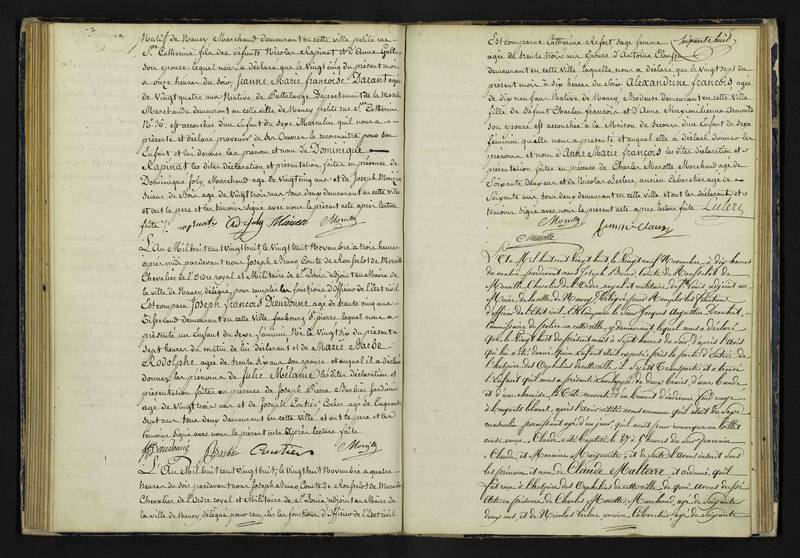 Natif de Nancy Marchand demeurant en cette ville petite rue
Ste Catherine fils des défunts Nicolas Rapinat et d'Anne Gallois
son epouse lequel nous a déclaré que le Vingt cinq du present mois
a onze heures du soir Jeanne Marie françoise Darant agée
de Vingt quatre ans Native de Puttelange Département de la Moselle
Marchande demeurant en cette ville de Nancy petite rue Ste Catherine
N° 36. est accouchée d'un Enfant du sexe Masculin qu'il nous a
présenté et déclaré provenir de ses Oeuvres le reconnaitre pour son
Enfant et lui donner les prénom et nom de Dominique
Rapinat les dites déclaration et présentation faites en présence de
Dominique Joly Marchand agé de vingt cinq ans et de Joseph
de Vingt trois ans tous deux demeurant en cette ville
et ont le pere et les témoins signé avec nous le présent acte après lecture
faite
rapinat D Joly
L'An Mil huit cent Vingt huit le Vingt huit Novembre a trois heures
après midi pardevant nous Joseph Bruno Comte de
Chevalier de l'Ordre royal et Militaire de St Louis adjoint au Maire de
la Ville de Nancy, délégué pour remplir les fonctions d'Officier de l'Etat civil
Est comparu Joseph françois Dieudonné agé de trente cinq ans
Tisserand demeurant en cette Ville faubourg St pierre lequel nous a
présenté un Enfant du sexe féminin Né le Vingt six du présent a
sept heures du matin de lui déclarant et de Marie Barbe
Rodolphe agée de trente six ans son epouse et auquel il a déclaré
donner les prénoms de Julie Mélanie les dites déclaration et
présentation faites en présence de Joseph Pierre Barbier Jardinier
agé de Vingt trois ans et de Joseph Coutier Cocher agé de Cinquante
sept ans tous deux demeurant en cette Ville, et ont le pere et les
témoins signé avec nous le présent acte Après lecture faite
Barbier Coutier
L'An Mil huit cent Vingt huit, le Vingt huit Novembre a quatre
heures du soir pardevant nous Joseph Bruno Comte de
Chevalier de l'Ordre royal et Militaire de St Louis adjoint au Maire de
la Ville de Nancy, délégué pour remplir les fonctions d'Officier de l'Etat civil
soixante huit
Est comparue Catherine Refort sage femme
agée de trente trois ans épouse d'Antoine
demeurant en cette Ville laquelle nous a déclaré que le Vingt sept du
présent mois a six heures du soir Alexandrine françois agée
de dix neuf ans Native de Nancy, Brodeuse demeurant en cette Ville
fille de défunt Charles françois et d'Anne Maximilienne
son epouse est accouchée a la Maison de Secours d'un Enfant du sexe
féminin quelle nous a présenté et auquel elle a déclaré donner les
prénoms et nom d'Anne Marie françois les dites déclaration et
présentation faites en présence de Charles Marotte Marchand agé de
Soixante deux ans et de Nicolas Leclerc ancien Cabaretier agé de
Soixante ans tous deux demeurant en cette ville et ont les déclarante et
témoins signé avec nous le présent acte après lecture faite Leclerc
Marotte
L'An Mil huit cent Vingt huit, le Vingt neuf Novembre à dix heures
du matin pardevant nous Joseph Bruno Comte de
Chevalier de l'Ordre royal et militaire de St Louis adjoint au
Maire de la ville de Nancy, Délégué pour Remplir les fonctions
d'officier de l'état civil, Est Comparu le Sieur Jacques Augustin
Commissaire de police en cette ville, y demeurant, lequel nous a déclaré
que le Vingt du présent mois à Sept heures du soir, d'après l'avis
qui lui a été donné qu'un Enfant était exposé près la porte d'Entrée de
l'hospice des Orphelins de cette ville, il s'y est Transporté et a trouvé
l'Enfant qu'il nous a présenté Enveloppé de deux
et d'une chemise, la tête couverte d'un bonnet d'indienne fond rouge
à bouquets blancs, après l'avoir visité avons reconnu qu'il était du sexe
masculin paraissant agé d'un jour, qui avait pour remarque un billet
ainsi conçu « Claude, est Baptisé le 27 a 5 heures du soir parrain
« Claude, et Marraine « Marguerite » et de suite l'Avons inscrit sous
les prénom et nom de Claude Malterre et ordonné qu'il
fût remis à l'hospice des Orphelins de cette ville de quoi Avons dressé
Acte en présence de Charles Marotte, Marchand, agé de Soixante
deux ans, et de Nicolas Leclerc, ancien Cabaretier, agé de Soixante